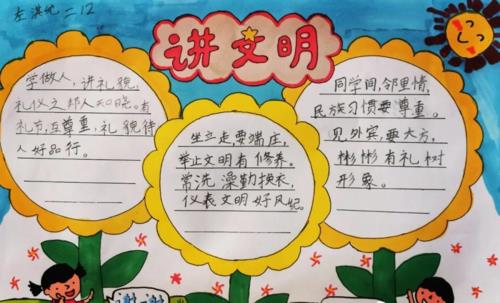 二.12
讲文明
学做人，讲礼貌，
礼仪之邦人知晓。有
礼节，互尊重，礼貌待
人好品行。
坐立走，要端庄，
举止文明有修养。
常洗澡勤换衣，
仪表文明好风纪。
同学间，邻里情，
民族习惯要尊重。
见外宾，要大方，
彬彬有礼树
形象。
谢谢